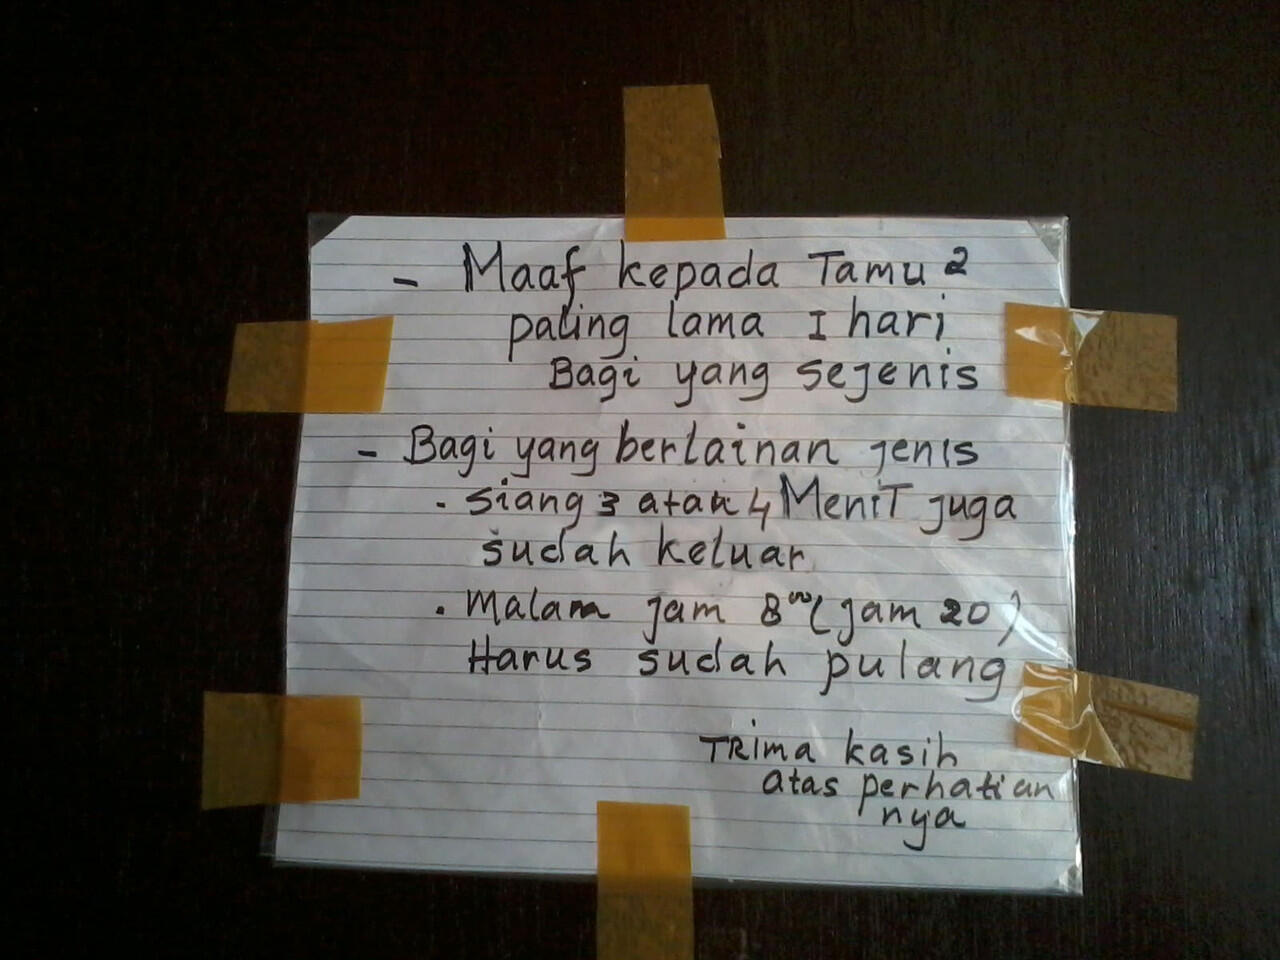 - Maaf kepada Tamu ²
paling lama I hari
Bagi yang sejenis
- Bagi yang berlainan jenis
. siang 3 atau 4 MeniT juga
sudah keluar
. Malam jam 8⁰⁰ (jam 20)
Harus sudah pulang
TRima kasih
atas perhatian
nya